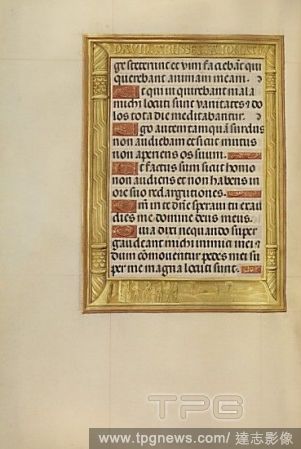 ge steterunt et vim faciebāt qui
querebant animam meam.
Et qui inquirebant mala
michi locuti sunt vanitates & do
los tota die meditabantur.
Ego autem tamquā surdus
non audiebam et sicut mutus
non aperiens os suum.
Et factus sum sicut homo
non audiens et non habens in
ore suo redargutiones.
Qm̄ in te dn̄e speravi tu exau
dies me domine deus meus.
Quia dixi nequando super
gaudeant michi inimici mei &
dum cōmoventur pedes mei su
per me magna locuti sunt.
TPG
www.tpgnews.com/ 達志影像